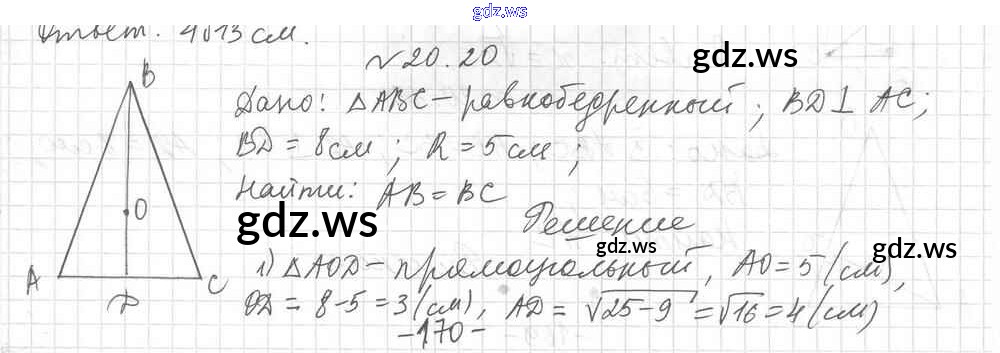 gdz.ws
Ответ. 4√13 см.
№20.20
gdz.ws
B
Дано: △ABC - равнобедренный; BD⊥AC;
BD = 8см; R = 5см;
gdz.ws
Найти: AB = BC
O
gdz.ws
Решение
gdz.ws
gdz.ws
1) △AOD - прямоугольный, AO = 5 (см),
A
C
D
OD = 8-5 = 3 (см), AD = √25-9 = √16 = 4 (см)
-170-